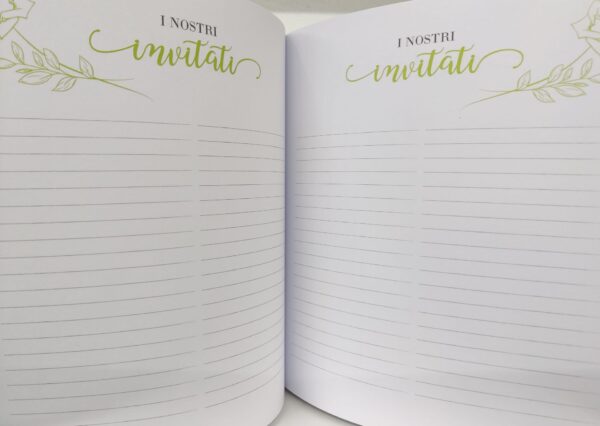 I NOSTRI
invitati
I NOSTRI
invitati